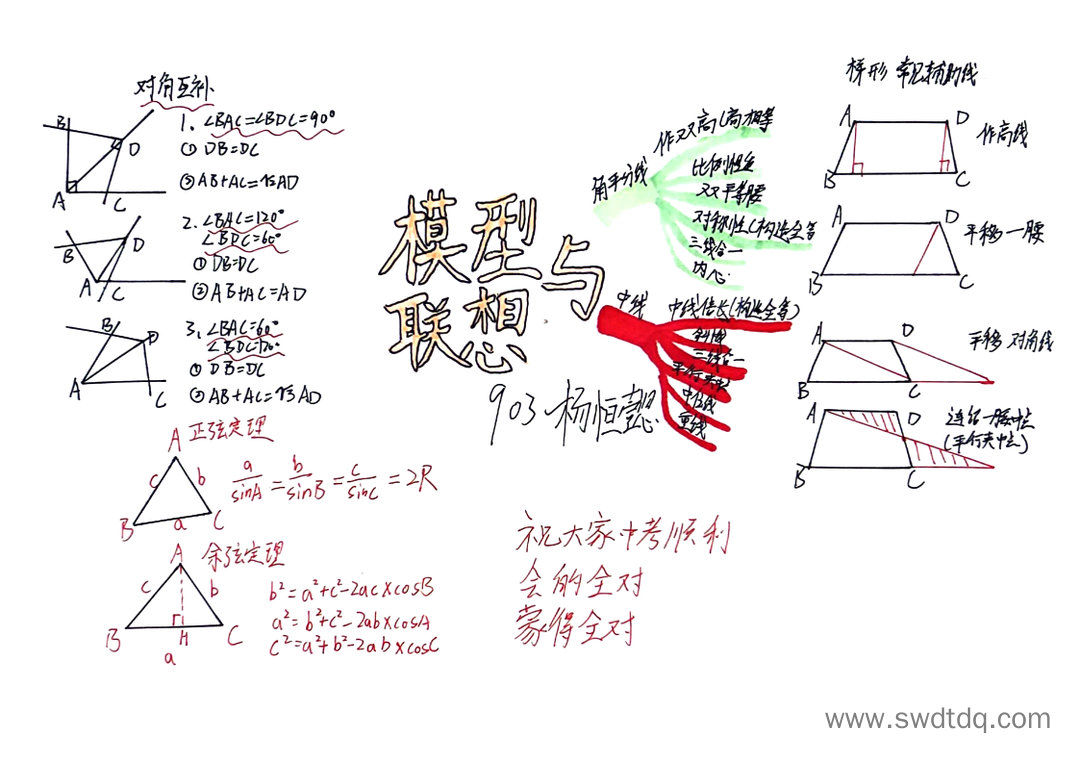 对角互补
B
D
A
C
1. ∠BAC=∠BDC=90°
① DB=DC
② AB+AC=√2AD
B
D
A
C
2. ∠BAC=120°
∠BDC=60°
① DB=DC
② AB+AC=AD
B
D
A
C
3. ∠BAC=60°
∠BDC=120°
① DB=DC
② AB+AC=√3AD
A 正弦定理
c
b
B
a
C
a/sinA = b/sinB = c/sinC = 2R
A 余弦定理
c
b
B
H
C
a
b²=a²+c²-2ac×cosB
a²=b²+c²-2ab×cosA
c²=a²+b²-2ab×cosC
模型与
联想
903 杨恒懿
角平分线
作双高(高相等
比例性质
双平等腰
对称性(构造全等
三线合一
内心
中线
中线倍长(构造全等)
斜中
三线合一
平行夹中
中位线
重线
祝大家中考顺利
会的全对
蒙得全对
梯形 常见辅助线
A
D
B
C
作高线
A
D
B
C
平移一腰
A
D
B
C
平移对角线
A
D
B
C
连结一腰中点
(平行夹中点)
www.swdtdq.com